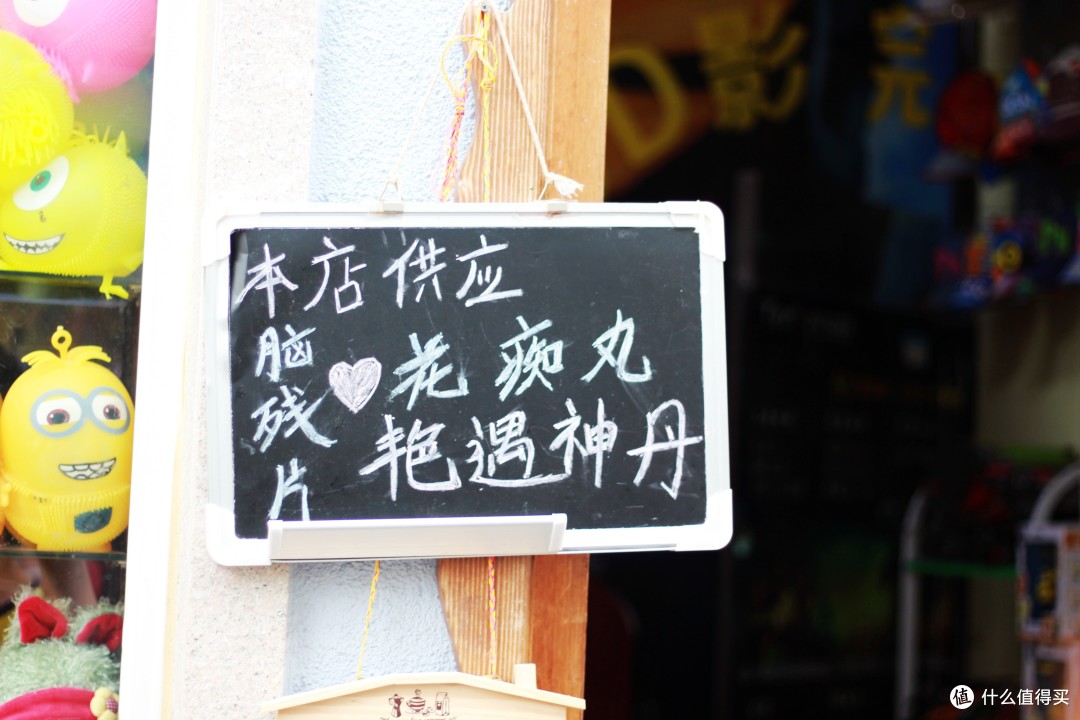 本店供应
脑残片
花痴丸
艳遇神丹
D影完
值 什么值得买